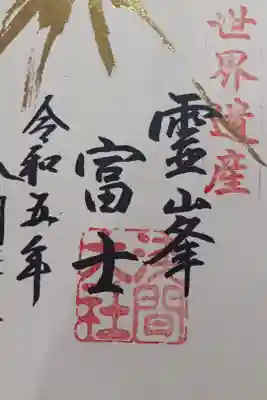 世界遺産
霊山峯
富士
浅間大社
令和五年